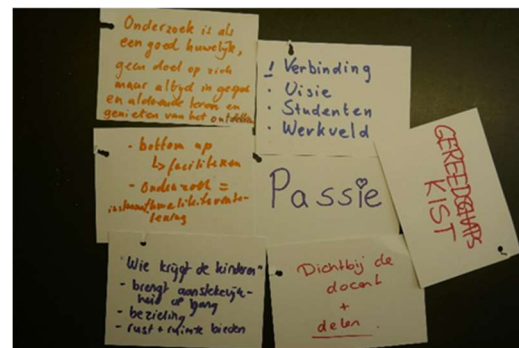 Onderzoek is als
een goed huwelijk,
geen doel op zich
maar altijd in gesprek
en al doende leren en
genieten van het ontdekken
! Verbinding
· Visie
· Studenten
· Werkveld
- bottom up
↳ faciliteren
- onderzoek =
Passie
GEREEDSCHAPS
KIST
Wie krijgt de kinderen -
- brengt aanstekelijk-
heid op gang
- bezieling
- rust + ruimte bieden
Dichtbij de
docent
+
delen.